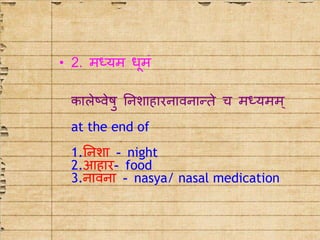 • 2. मध्यम धूमं
कालेष्वेषु निशाहारनावनान्ते च मध्यमम्
at the end of
1.निशा - night
2.आहार- food
3.नावना - nasya/ nasal medication